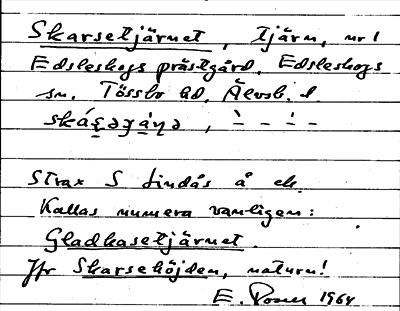 Skarsetjärnet, tjärn, nr 1
Edsleskogs prästgård. Edsleskogs
sn. Tössbo hd, Älvsb. l.
Strax S Lindås å ek.
Kallas numera vanligen:
Gladkasetjärnet.
Jfr Skarsehöjden, naturn!
E. Rosen 1964